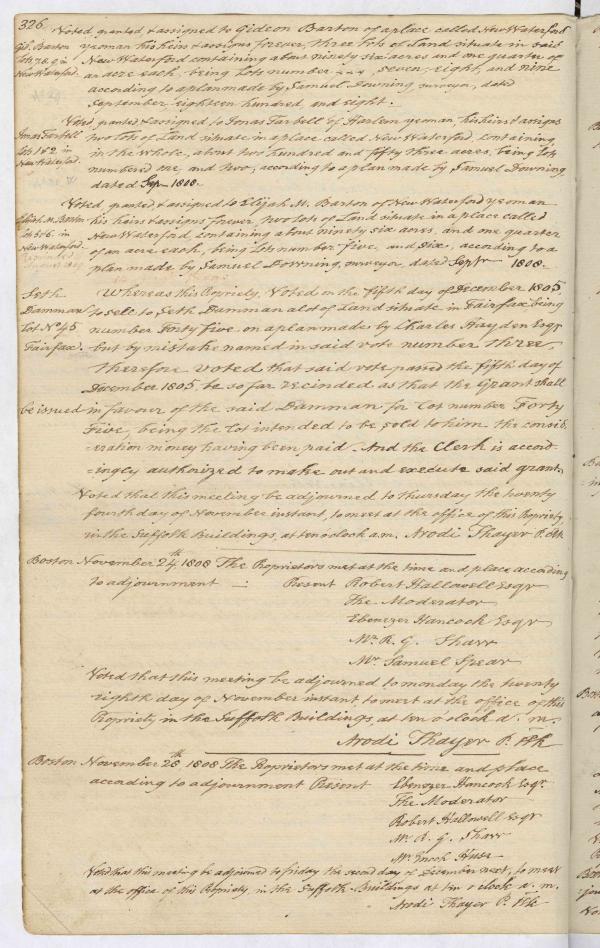 326.
Voted granted & assigned to Gideon Barton of a place called New Waterford
Gid. Barton yeoman his heirs & assigns forever, three lots of Land situate in said
Lots 7.8.9 in New Waterford containing about ninety six acres and one quarter of
New Waterford. an acre each, being lots number seven, eight, and nine
according to a plan made by Samuel Downing surveyor, dated
September eighteen hundred, and eight.
Voted, granted & assigned to Jonas Farbell of Harlem yeoman his heirs & assigns
Jonas Farbell two lots of Land situate in a place called New Waterford, containing
Lots 1 & 2 in in the whole, about two hundred and fifty three acres, being lots
New Waterford. numbered one, and two, according to a plan made by Samuel Downing
dated Sepr. 1808.
Voted, granted & assigned to Elijah M. Barton of New Waterford yeoman
Elijah M. Barton his heirs & assigns forever, two lots of Land situate in a place called
Lots 5 & 6. in New Waterford, containing about ninety six acres, and one quarter
New Waterford. of an acre each, being lots number five, and six, according to a
plan made by Samuel Downing, surveyor, dated Septr 1808.
Seth Whereas this Propriety, Voted on the fifth day of December 1805
Damman to sell to Seth Damman a lot of Land situate in Fairfax being
Lot No 45 number Forty five, on a plan made by Charles Hayden Esqr
Fairfax. but by mistake named in said vote number three,
Therefore voted that said vote passed the fifth day of
December 1805, be so far recinded as that the Grant shall
be issued in favour of the said Damman for Lot number Forty
Five, being the Lot intended to be sold to him the consid
=eration money having been paid And the Clerk is accord-
=ingly authorized to make out and execute said grant.
Voted that this meeting be adjourned to thursday the twenty
fourth day of November instant, to meet at the office of this Propriety,
in the Suffolk Buildings, at ten o clock a.m. Arodi Thayer P. Clk
Boston November 24th 1808 The Proprietors met at the time and place according
to adjournment : Present Robert Hallowell Esqr
The Moderator
Ebenezer Hancock Esqr
Mr. R. G. Shaw
Mr. Samuel Spear
Voted that this meeting be adjourned to monday the twenty
eighth day of November instant, to meet at the office of this
Propriety in the Suffolk Buildings, at ten o clock a. m.
Arodi Thayer P. Clk
Boston November 28th 1808 The Proprietors met at the time and place
according to adjournment Present Ebenezer Hancock Esqr.
The Moderator
Robert Hallowell Esqr
Mr. R. G. Shaw
Mr. Enoch Huse
Voted that this meeting be adjourned to friday the second day of December next, to meet
at the office of this Propriety, in the Suffolk Buildings at ten o clock a. m.
Arodi Thayer P. Clk